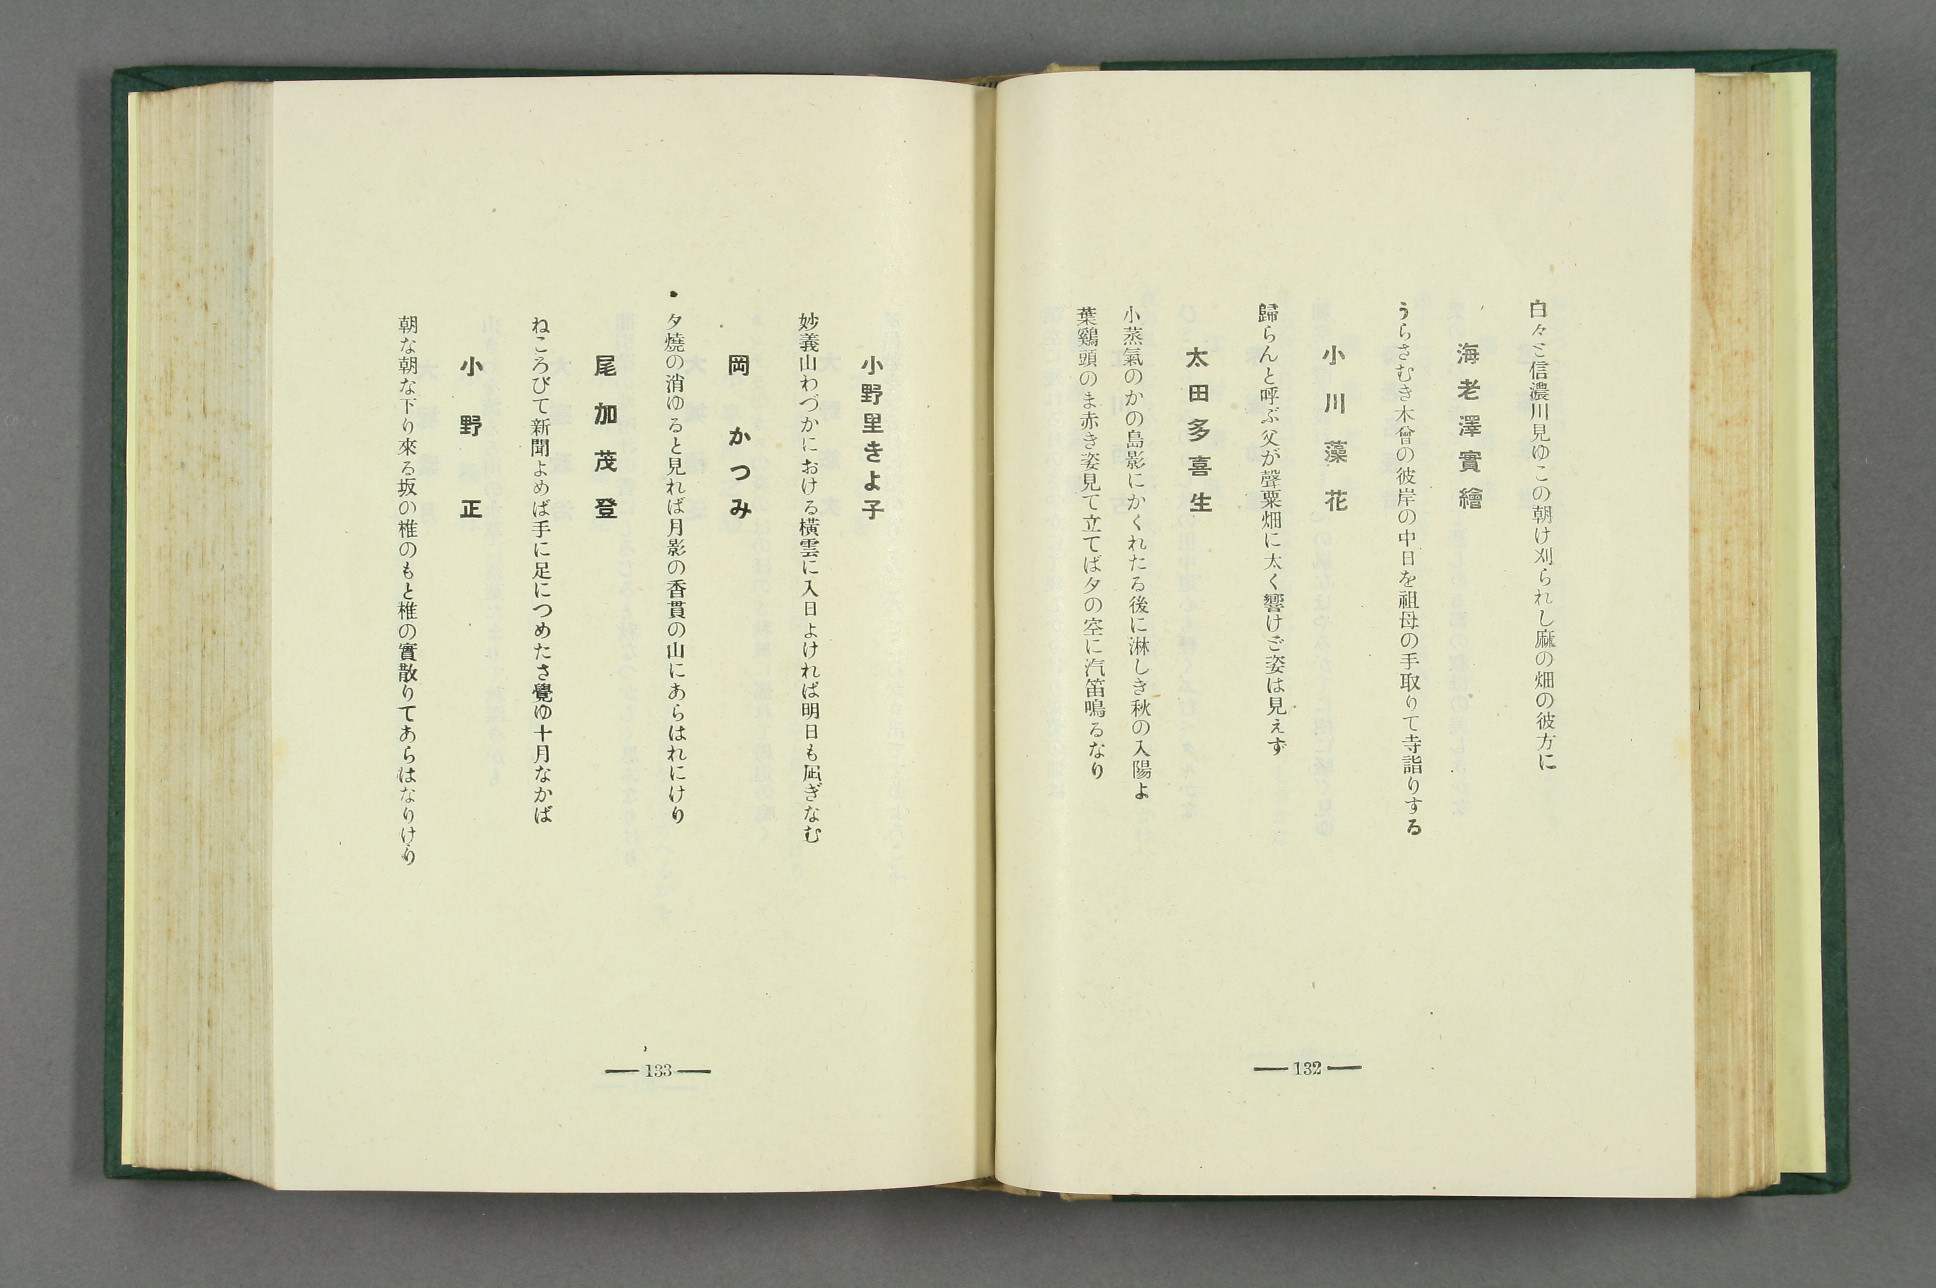 白々と信濃川見ゆこの朝け刈られし麻の畑の彼方に
海老澤實繪
うらさむき木曾の彼岸の中日を祖母の手取りて寺詣りする
小川藻花
歸らんと呼ぶ父が聲粟畑に太く響けど姿は見えず
太田多喜生
小蒸氣のかの島影にかくれたる後に淋しき秋の入陽よ
葉鷄頭のま赤き姿見て立てば夕の空に汽笛鳴るなり
132
小野里きよ子
妙義山わづかにおける橫雲に入日よければ明日も凪ぎなむ
岡かつみ
夕燒の消ゆると見れば月影の香貫の山にあらはれにけり
尾加茂登
ねころびて新聞よめば手に足につめたさ覺ゆ十月なかば
小野正
朝な朝な下り來る坂の椎のもと椎の實散りてあらはなりけり
133